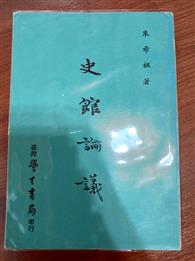 朱希祖 著
史館論議
臺灣 學生書局 印行